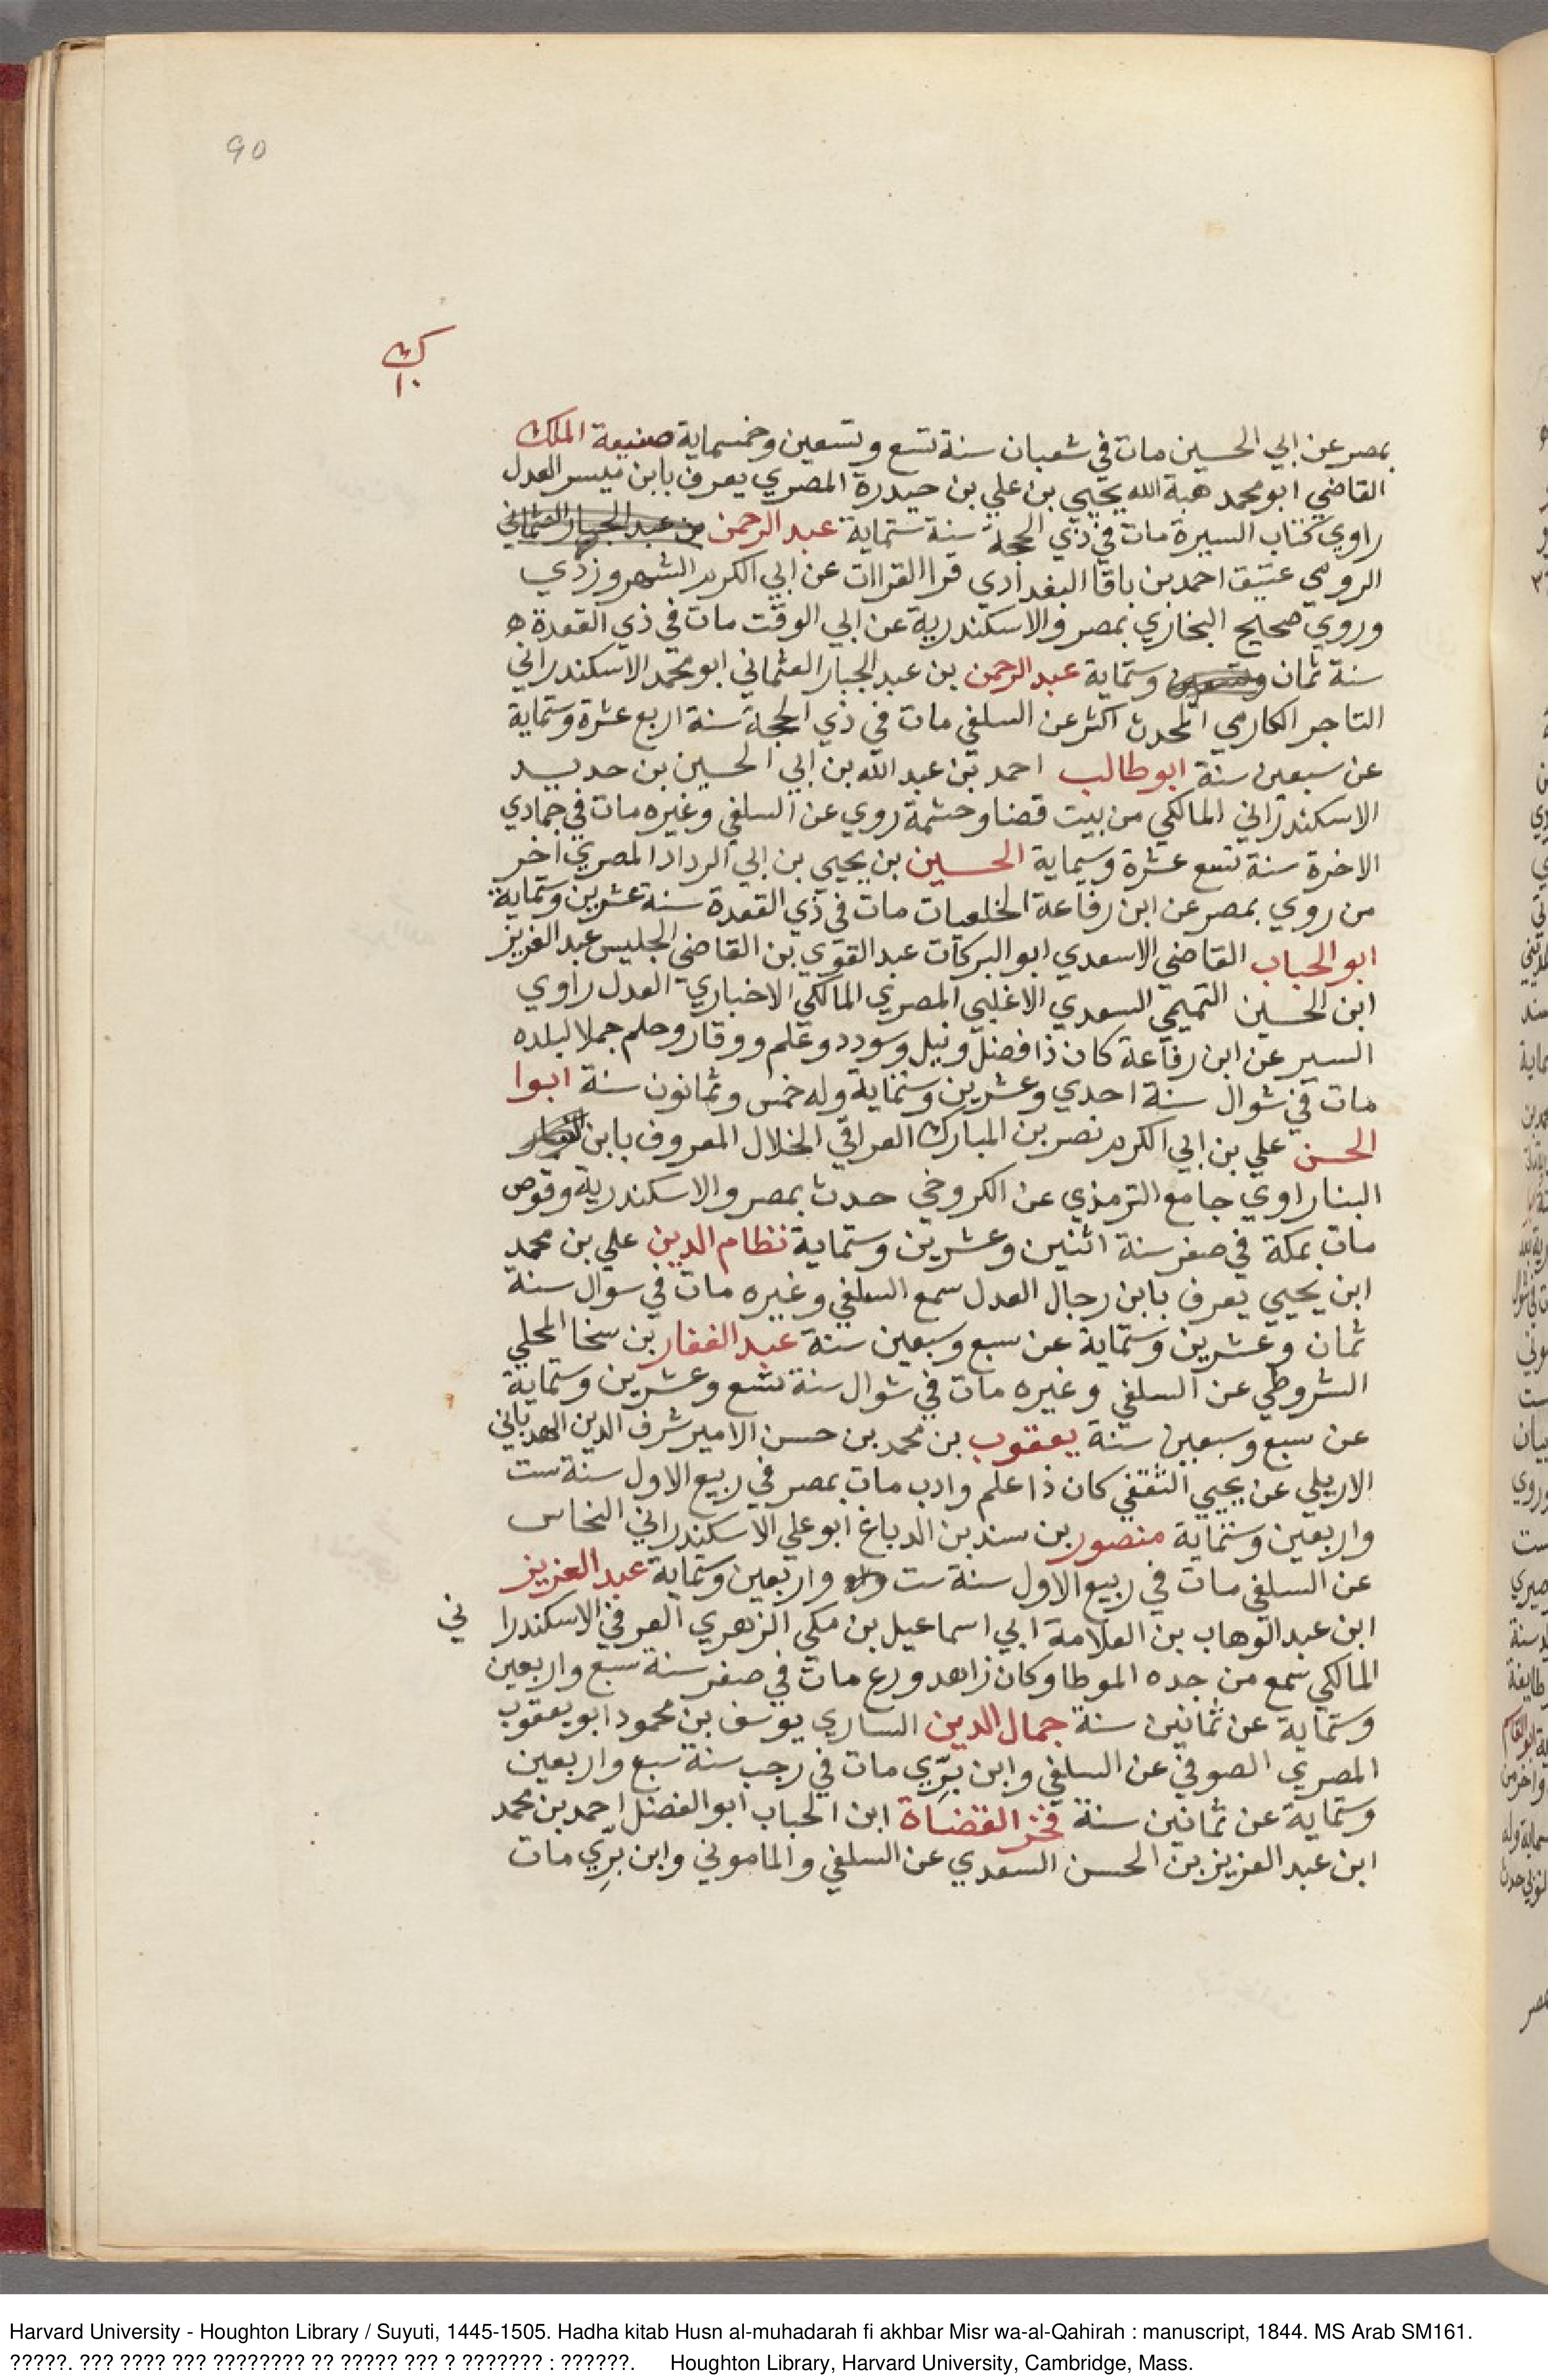 90
ك
١٠
بمصر عن ابي الحسين مات في شعبان سنة تسع وتسعين وخمسماية صنيعة الملك
القاضي ابو محمد هبة الله يحيي بن علي بن حيدرة المصري يعرف بابن ميسر العدل
راوي كتاب السيرة مات في ذي الحجة سنة ستماية عبد الرحمن بن عبد الجبار العثماني
الرومي عتيق احمد بن باقا البغدادي قرا القراات عن ابي الكرم الشهروزدي
وروي صحيح البخاري بمصر والاسكندرية عن ابي الوقت مات في ذي القعدة ه
سنة ثمان وستماية عبد الرحمن بن عبد الجبار العثماني ابو محمد الاسكندراني
التاجر الكارمي المحدث اكثر عن السلفي مات في ذي الحجة سنة اربع عشرة وستماية
عن سبعين سنة ابو طالب احمد بن عبد الله بن ابي الحسين بن حديد
الاسكندراني المالكي من بيت قضا وحشمة روي عن السلفي وغيره مات في جمادي
الاخرة سنة تسع عشرة وسيماية الحسين بن يحيي بن ابي الرداد المصري اخر
من روي بمصر عن ابن رفاعة الخلعيات مات في ذي القعدة سنة عشرين وستماية
ابو الحباب القاضي الاسعدي ابو البركات عبد القوي بن القاضي الجليس عبد العزيز
ابن الحسين التميمي السعدي الاغلبي المصري المالكي الاخباري العدل راوي
السير عن ابن رفاعة كان ذا فضل ونبل وسودد وعلم ووقار وحلم جملا لبلده
مات في شوال سنة احدي وعشرين وستماية وله خمس وثمانون سنة ابوا
الحسن علي بن ابي الكرم نصر بن المبارك العراقي الخلال المعروف بابن
البنا راوي جامع الترمذي عن الكروخي حدث بمصر والاسكندرية وقوص
مات بمكة في صفر سنة اثنين وعشرين وستماية نظام الدين علي بن محمد
ابن يحيي يعرف بابن رجال العدل سمع السلفي وغيره مات في سوال سنة
ثمان وعشرين وستماية عن سبع وسبعين سنة عبد الغفار بن سخا المحلي
الشروطي عن السلفي وغيره مات في شوال سنة تسع وعشرين وستماية
عن سبع وسبعين سنة يعقوب بن محمد بن حسن الامير شرف الدين الهدباني
الاربلي عن يحيي الثقفي كان ذا علم وادب مات بمصر في ربيع الاول سنة ست
واربعين وستماية منصور بن سند بن الدباغ ابو علي الاسكندراني النحاس
عن السلفي مات في ربيع الاول سنة ست واربعين وستماية عبد العزيز
ابن عبد الوهاب بن العلامة ابي اسماعيل بن مكي الزهري العوفي الاسكندرا ني
المالكي سمع من جده الموطا وكان زاهد ورع مات في صفر سنة سبع واربعين
وستماية عن ثمانين سنة جمال الدين الساري يوسف بن محمود ابو يعقوب
المصري الصوفي عن السلفي وابن برّي مات في رجب سنة سبع واربعين
وستماية عن ثمانين سنة فخر القضاة ابن الحباب ابو الفضل احمد بن محمد
ابن عبد العزيز بن الحسن السعدي عن السلفي والماموني وابن برّي مات
Harvard University - Houghton Library / Suyuti, 1445-1505. Hadha kitab Husn al-muhadarah fi akhbar Misr wa-al-Qahirah : manuscript, 1844. MS Arab SM161.
?????. ??? ???? ??? ???????? ?? ????? ??? ? ??????? : ??????. Houghton Library, Harvard University, Cambridge, Mass.